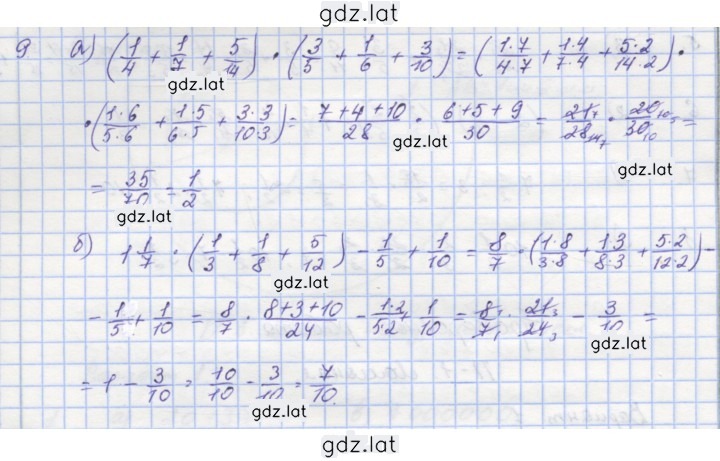 gdz.lat
9 а) (1/4 + 1/7 + 5/14) · (3/5 + 1/6 + 3/10) = (1·7/4·7 + 1·4/7·4 + 5·2/14·2) ·
gdz.lat
· (1·6/5·6 + 1·5/6·5 + 3·3/10·3) = 7+4+10/28 · 6+5+9/30 = 21/28 · 20/30 =
gdz.lat
gdz.lat
= 35/70 = 1/2
gdz.lat
б) 1 1/7 · (1/3 + 1/8 + 5/12) - 1/5 + 1/10 = 8/7 · (1·8/3·8 + 1·3/8·3 + 5·2/12·2) -
gdz.lat
- 1/5 + 1/10 = 8/7 · 8+3+10/24 - 1·2/5·2 + 1/10 = 8/7 · 21/24 - 3/10 =
gdz.lat
= 1 - 3/10 = 10/10 - 3/10 = 7/10
gdz.lat
gdz.lat